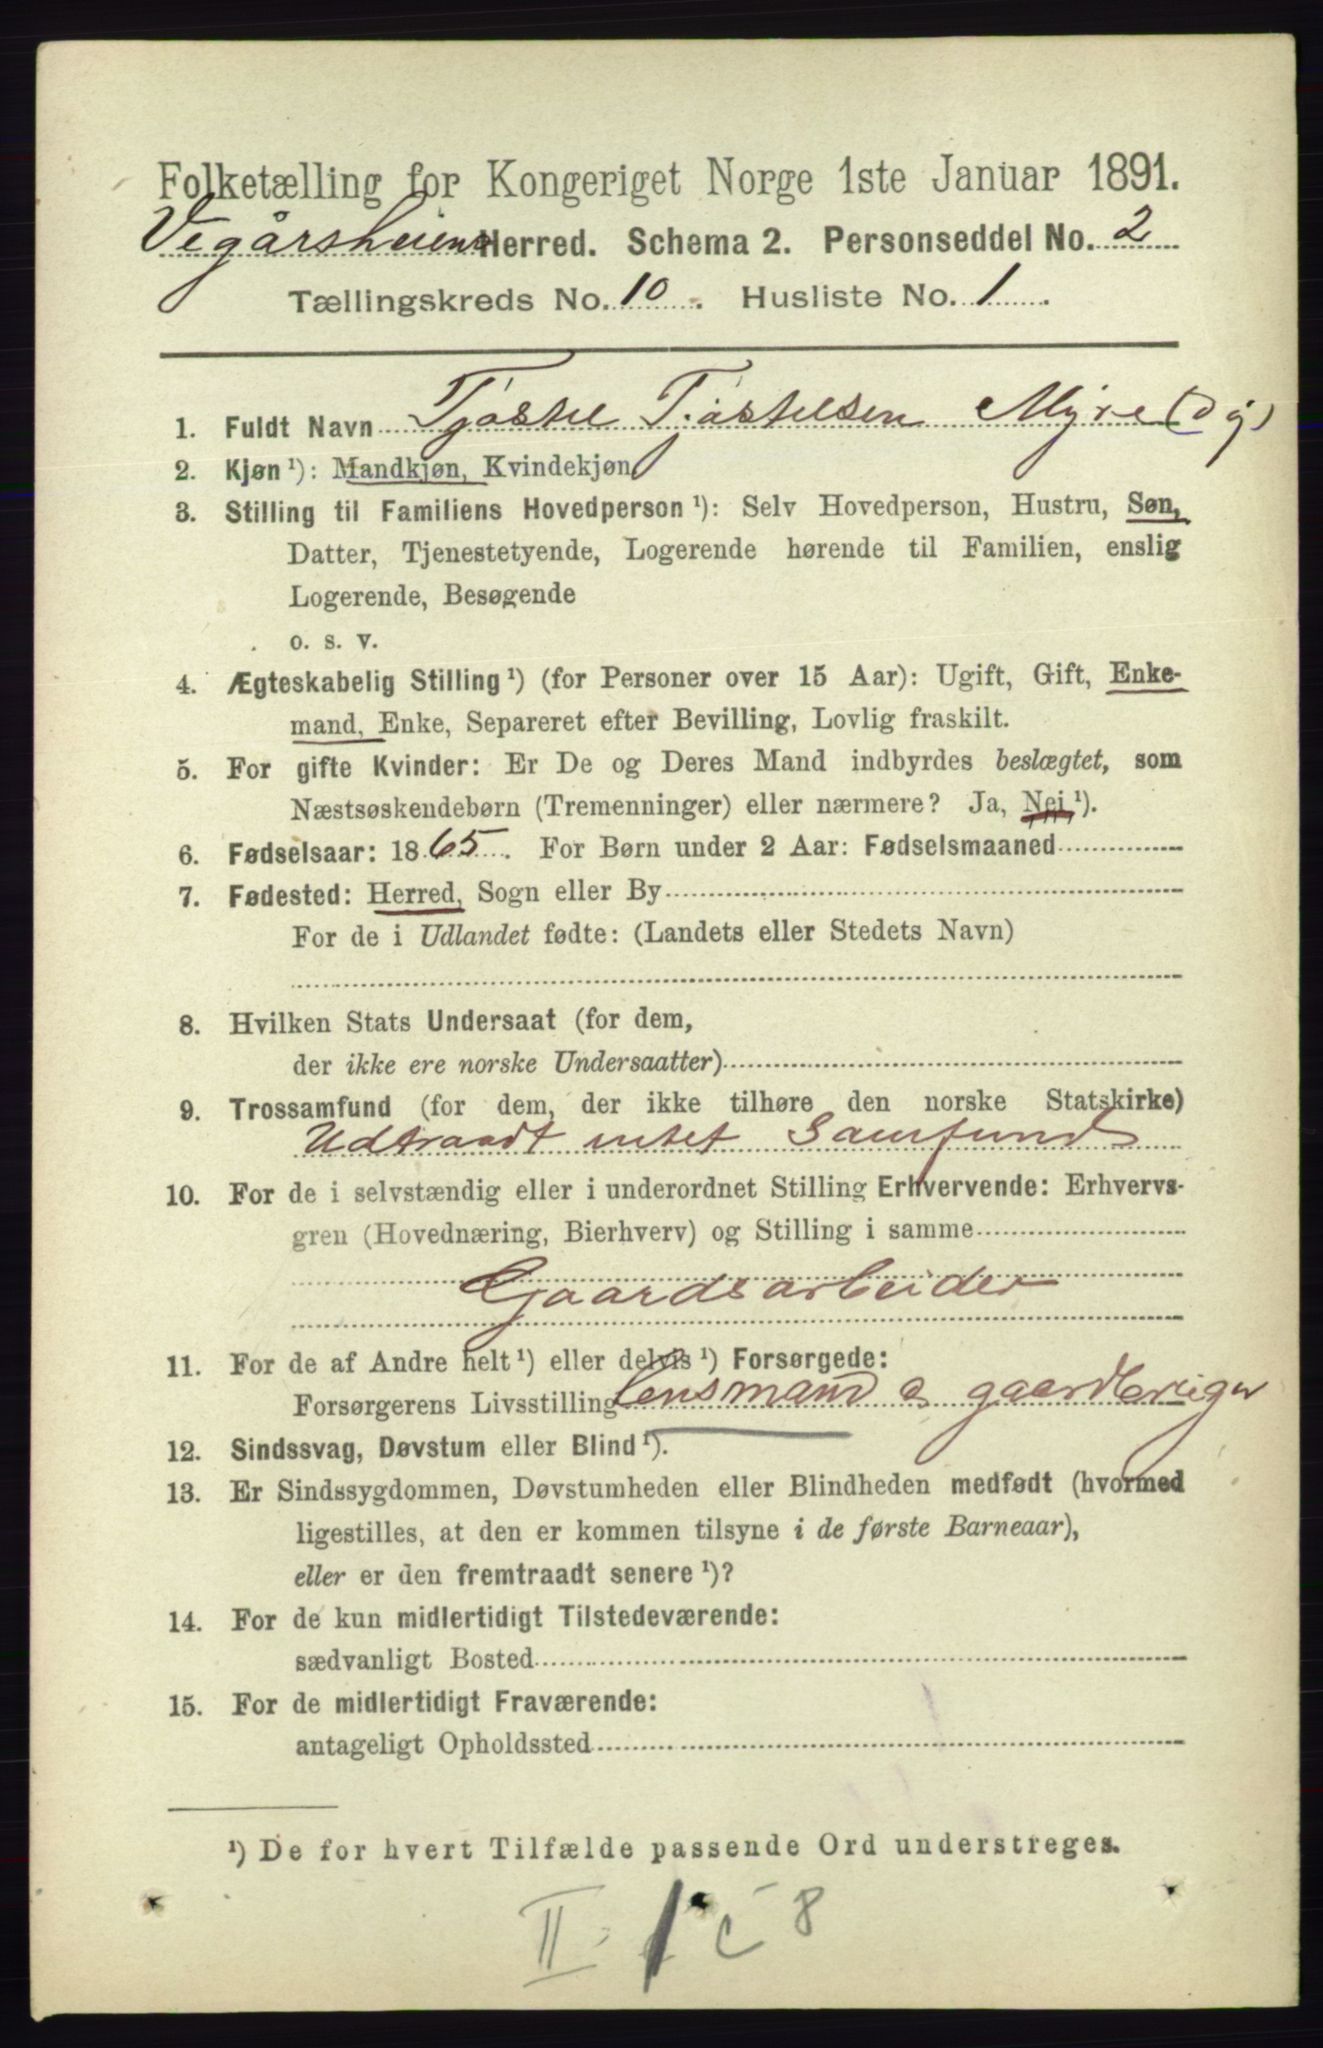 Folketælling for Kongeriget Norge 1ste Januar 1891.
Vegårsheiens Herred. Schema 2. Personseddel No. 2
Tællingskreds No. 10. Husliste No. 1.
1. Fuldt Navn Tjøstel Tjøstelsen Myre
2. Kjøn ¹): Mandkjøn, Kvindekjøn
3. Stilling til Familiens Hovedperson ¹): Selv Hovedperson, Hustru, Søn,
Datter, Tjenestetyende, Logerende hørende til Familien, enslig
Logerende, Besøgende
o. s. v.
4. Ægteskabelig Stilling ¹) (for Personer over 15 Aar): Ugift, Gift, Enke-
mand, Enke, Separeret efter Bevilling, Lovlig fraskilt.
5. For gifte Kvinder: Er De og Deres Mand indbyrdes beslægtet, som
Næstsøskendebørn (Tremenninger) eller nærmere? Ja, Nei ¹).
6. Fødselsaar: 1865. For Børn under 2 Aar: Fødselsmaaned
7. Fødested: Herred, Sogn eller By
For de i Udlandet fødte: (Landets eller Stedets Navn)
8. Hvilken Stats Undersaat (for dem,
der ikke ere norske Undersaatter)
9. Trossamfund (for dem, der ikke tilhøre den norske Statskirke)
Udtraadt intet Samfund
10. For de i selvstændig eller i underordnet Stilling Erhvervende: Erhvervs-
gren (Hovednæring, Bierhverv) og Stilling i samme
Gaardsarbeider
11. For de af Andre helt ¹) eller delvis ¹) Forsørgede:
Forsørgerens Livsstilling Lensmand & gaardbruger
12. Sindssvag, Døvstum eller Blind ¹).
13. Er Sindssygdommen, Døvstumheden eller Blindheden medfødt (hvormed
ligestilles, at den er kommen tilsyne i de første Barneaar),
eller er den fremtraadt senere ¹)?
14. For de kun midlertidigt Tilstedeværende:
sædvanligt Bosted
15. For de midlertidigt Fraværende:
antageligt Opholdssted
¹) De for hvert Tilfælde passende Ord understreges.
II